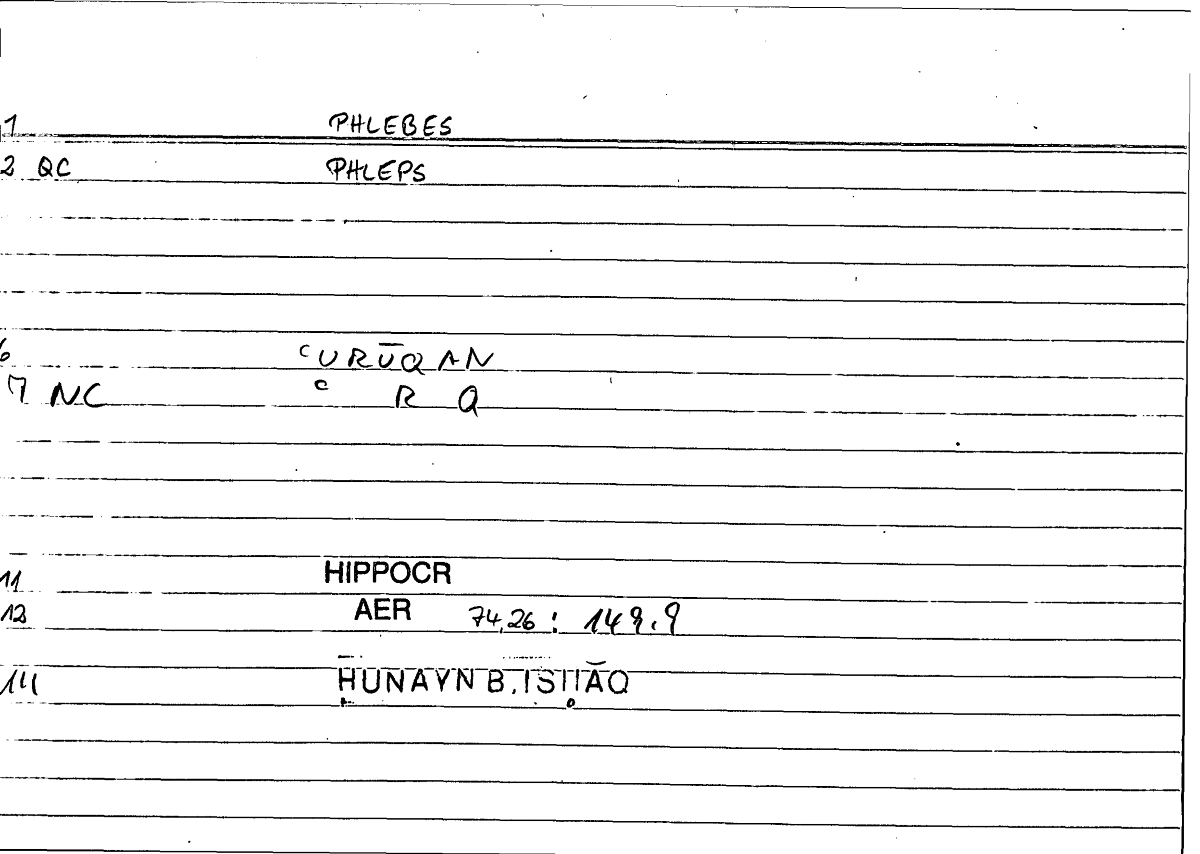 1 PHLEBES
2 QC PHLEPS
6 ᶜURŪQAN
7 NC ᶜ R Q
11 HIPPOCR
12 AER 74,26 : 149.9
14 ḤUNAYN B. ISḤĀQ